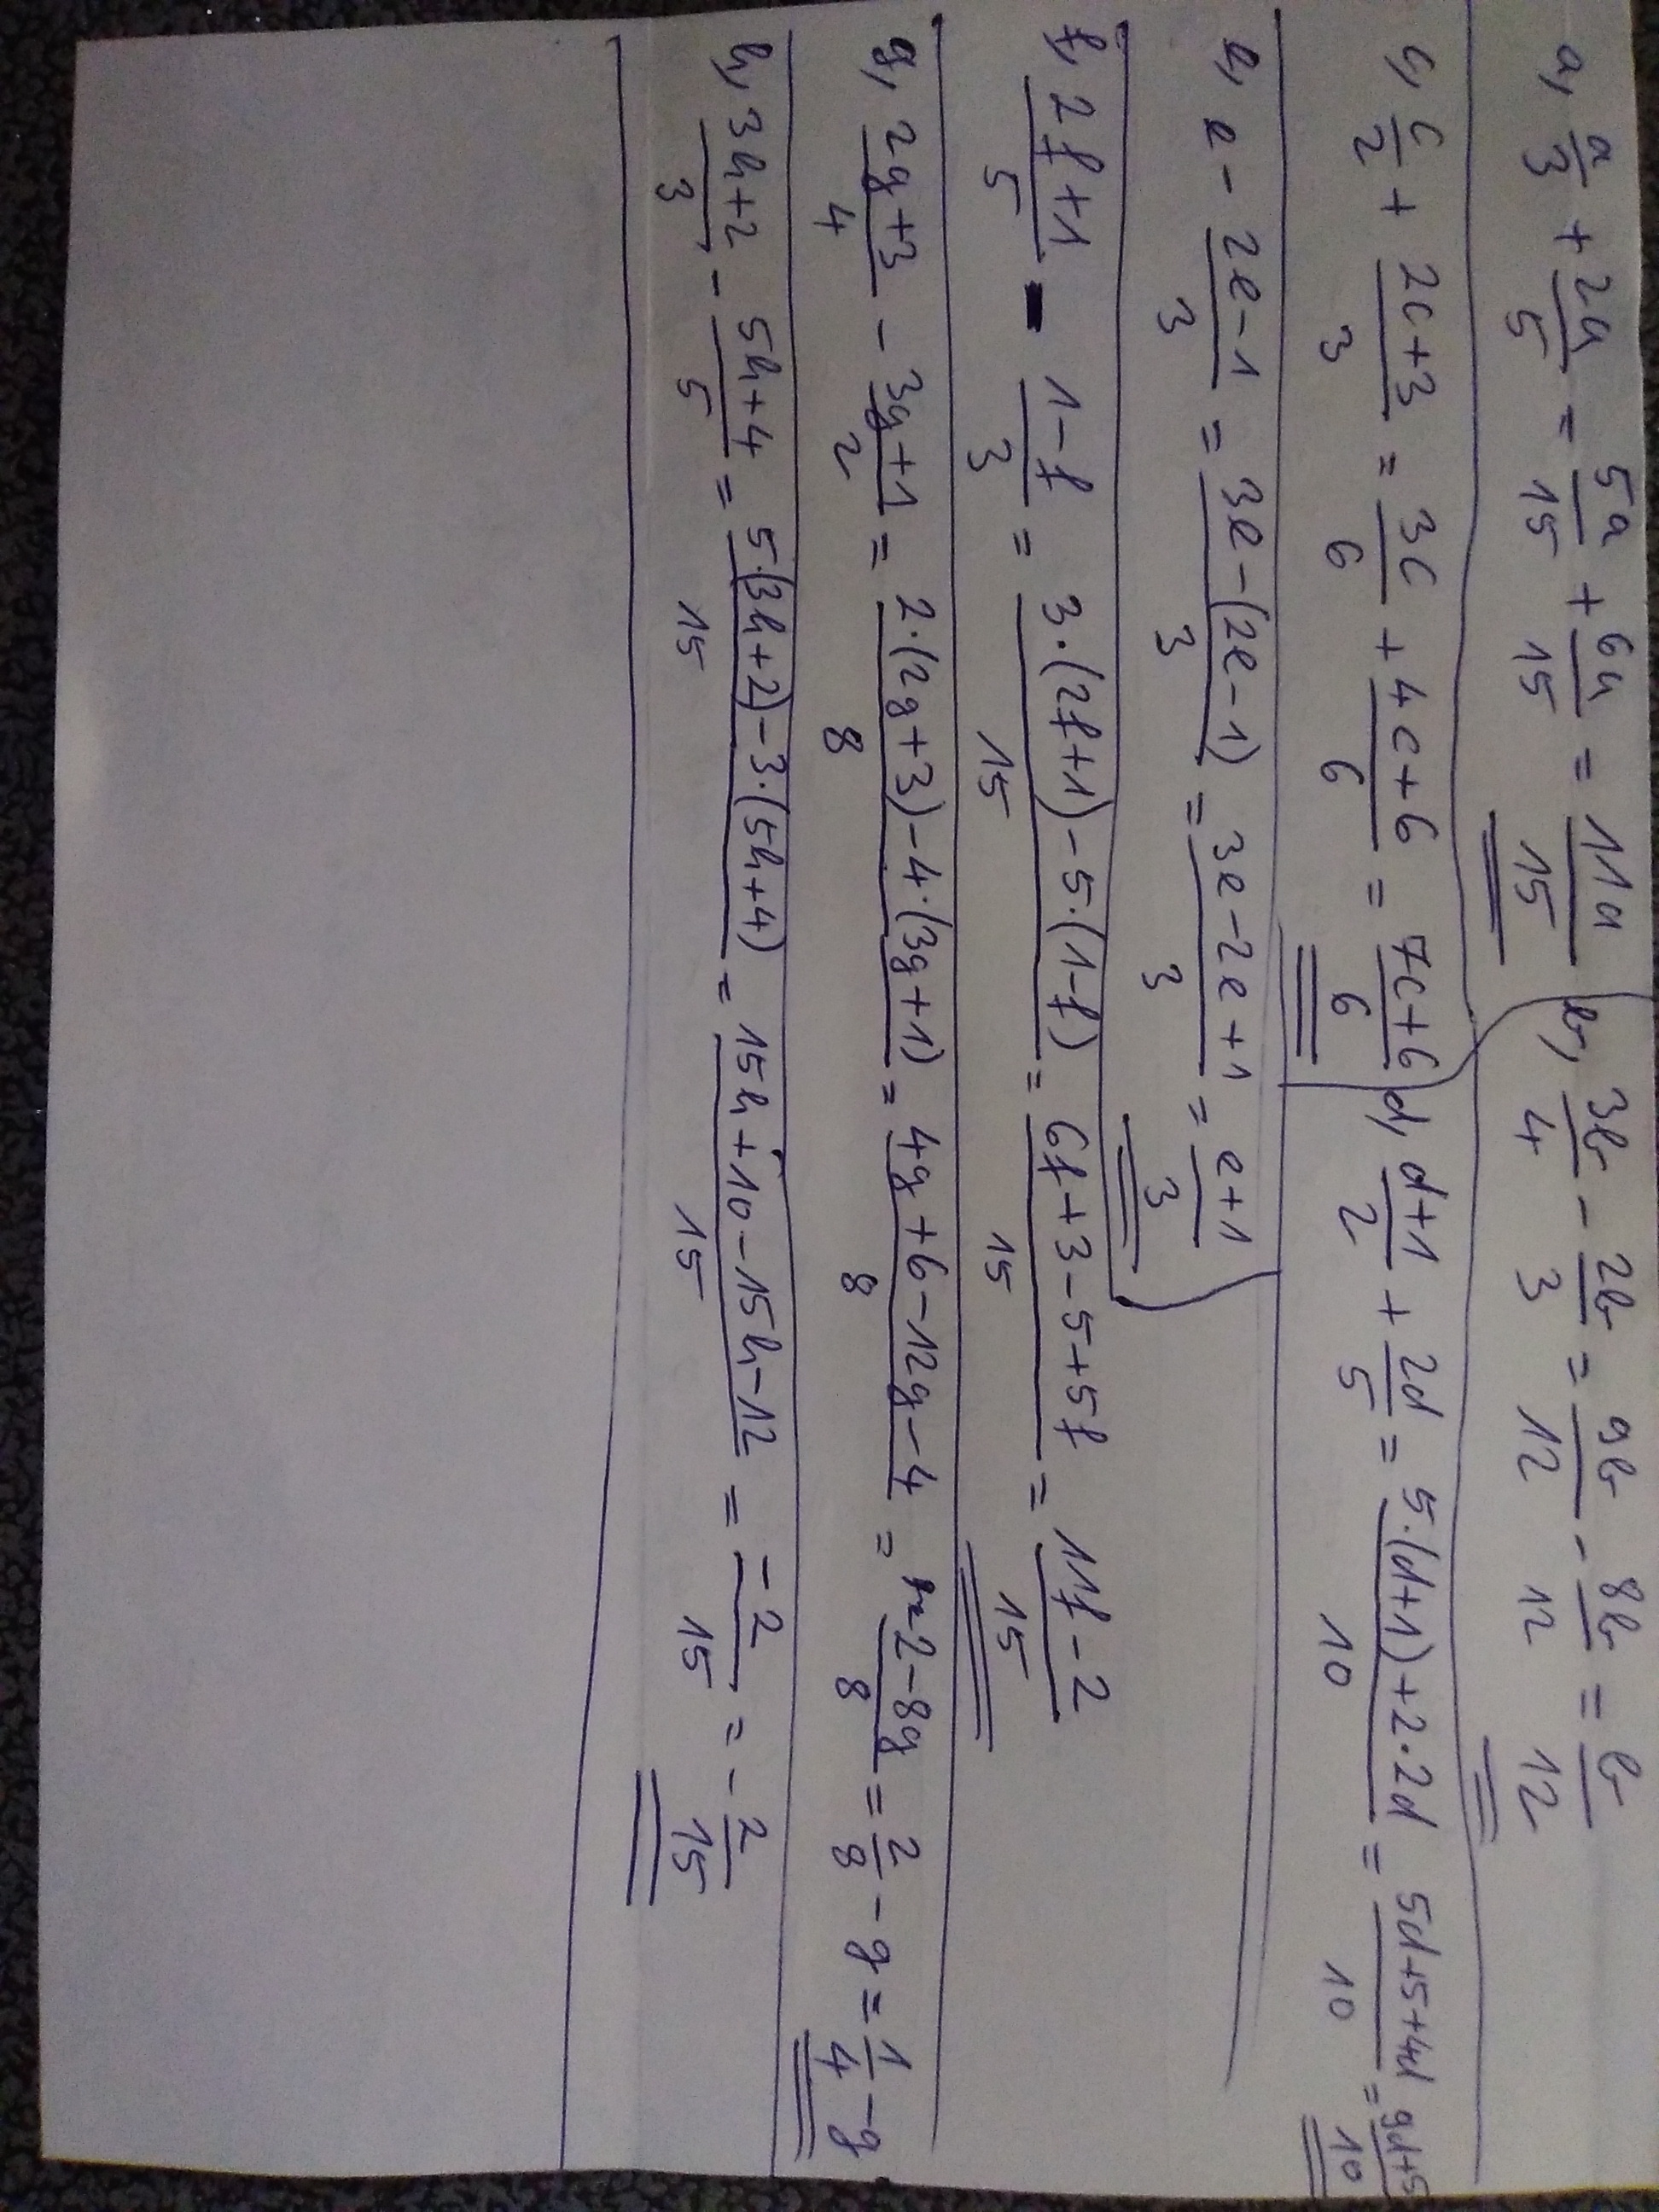 a, a/3 + 2a/5 = 5a/15 + 6a/15 = 11a/15 b, 3b/4 - 2b/3 = 9b/12 - 8b/12 = b/12
c, c/2 + (2c+3)/3 = 3c/6 + (4c+6)/6 = (7c+6)/6 d, (d+1)/2 + 2d/5 = (5·(d+1)+2·2d)/10 = (5d+5+4d)/10 = (9d+5)/10
e, e - (2e-1)/3 = (3e-(2e-1))/3 = (3e-2e+1)/3 = (e+1)/3
f, (2f+1)/5 - (1-f)/3 = (3·(2f+1)-5·(1-f))/15 = (6f+3-5+5f)/15 = (11f-2)/15
g, (2g+3)/4 - (3g+1)/2 = (2·(2g+3)-4·(3g+1))/8 = (4g+6-12g-4)/8 = (2-8g)/8 = 2/8 - g = 1/4 - g
h, (3h+2)/3 - (5h+4)/5 = (5·(3h+2)-3·(5h+4))/15 = (15h+10-15h-12)/15 = (-2)/15 = - 2/15